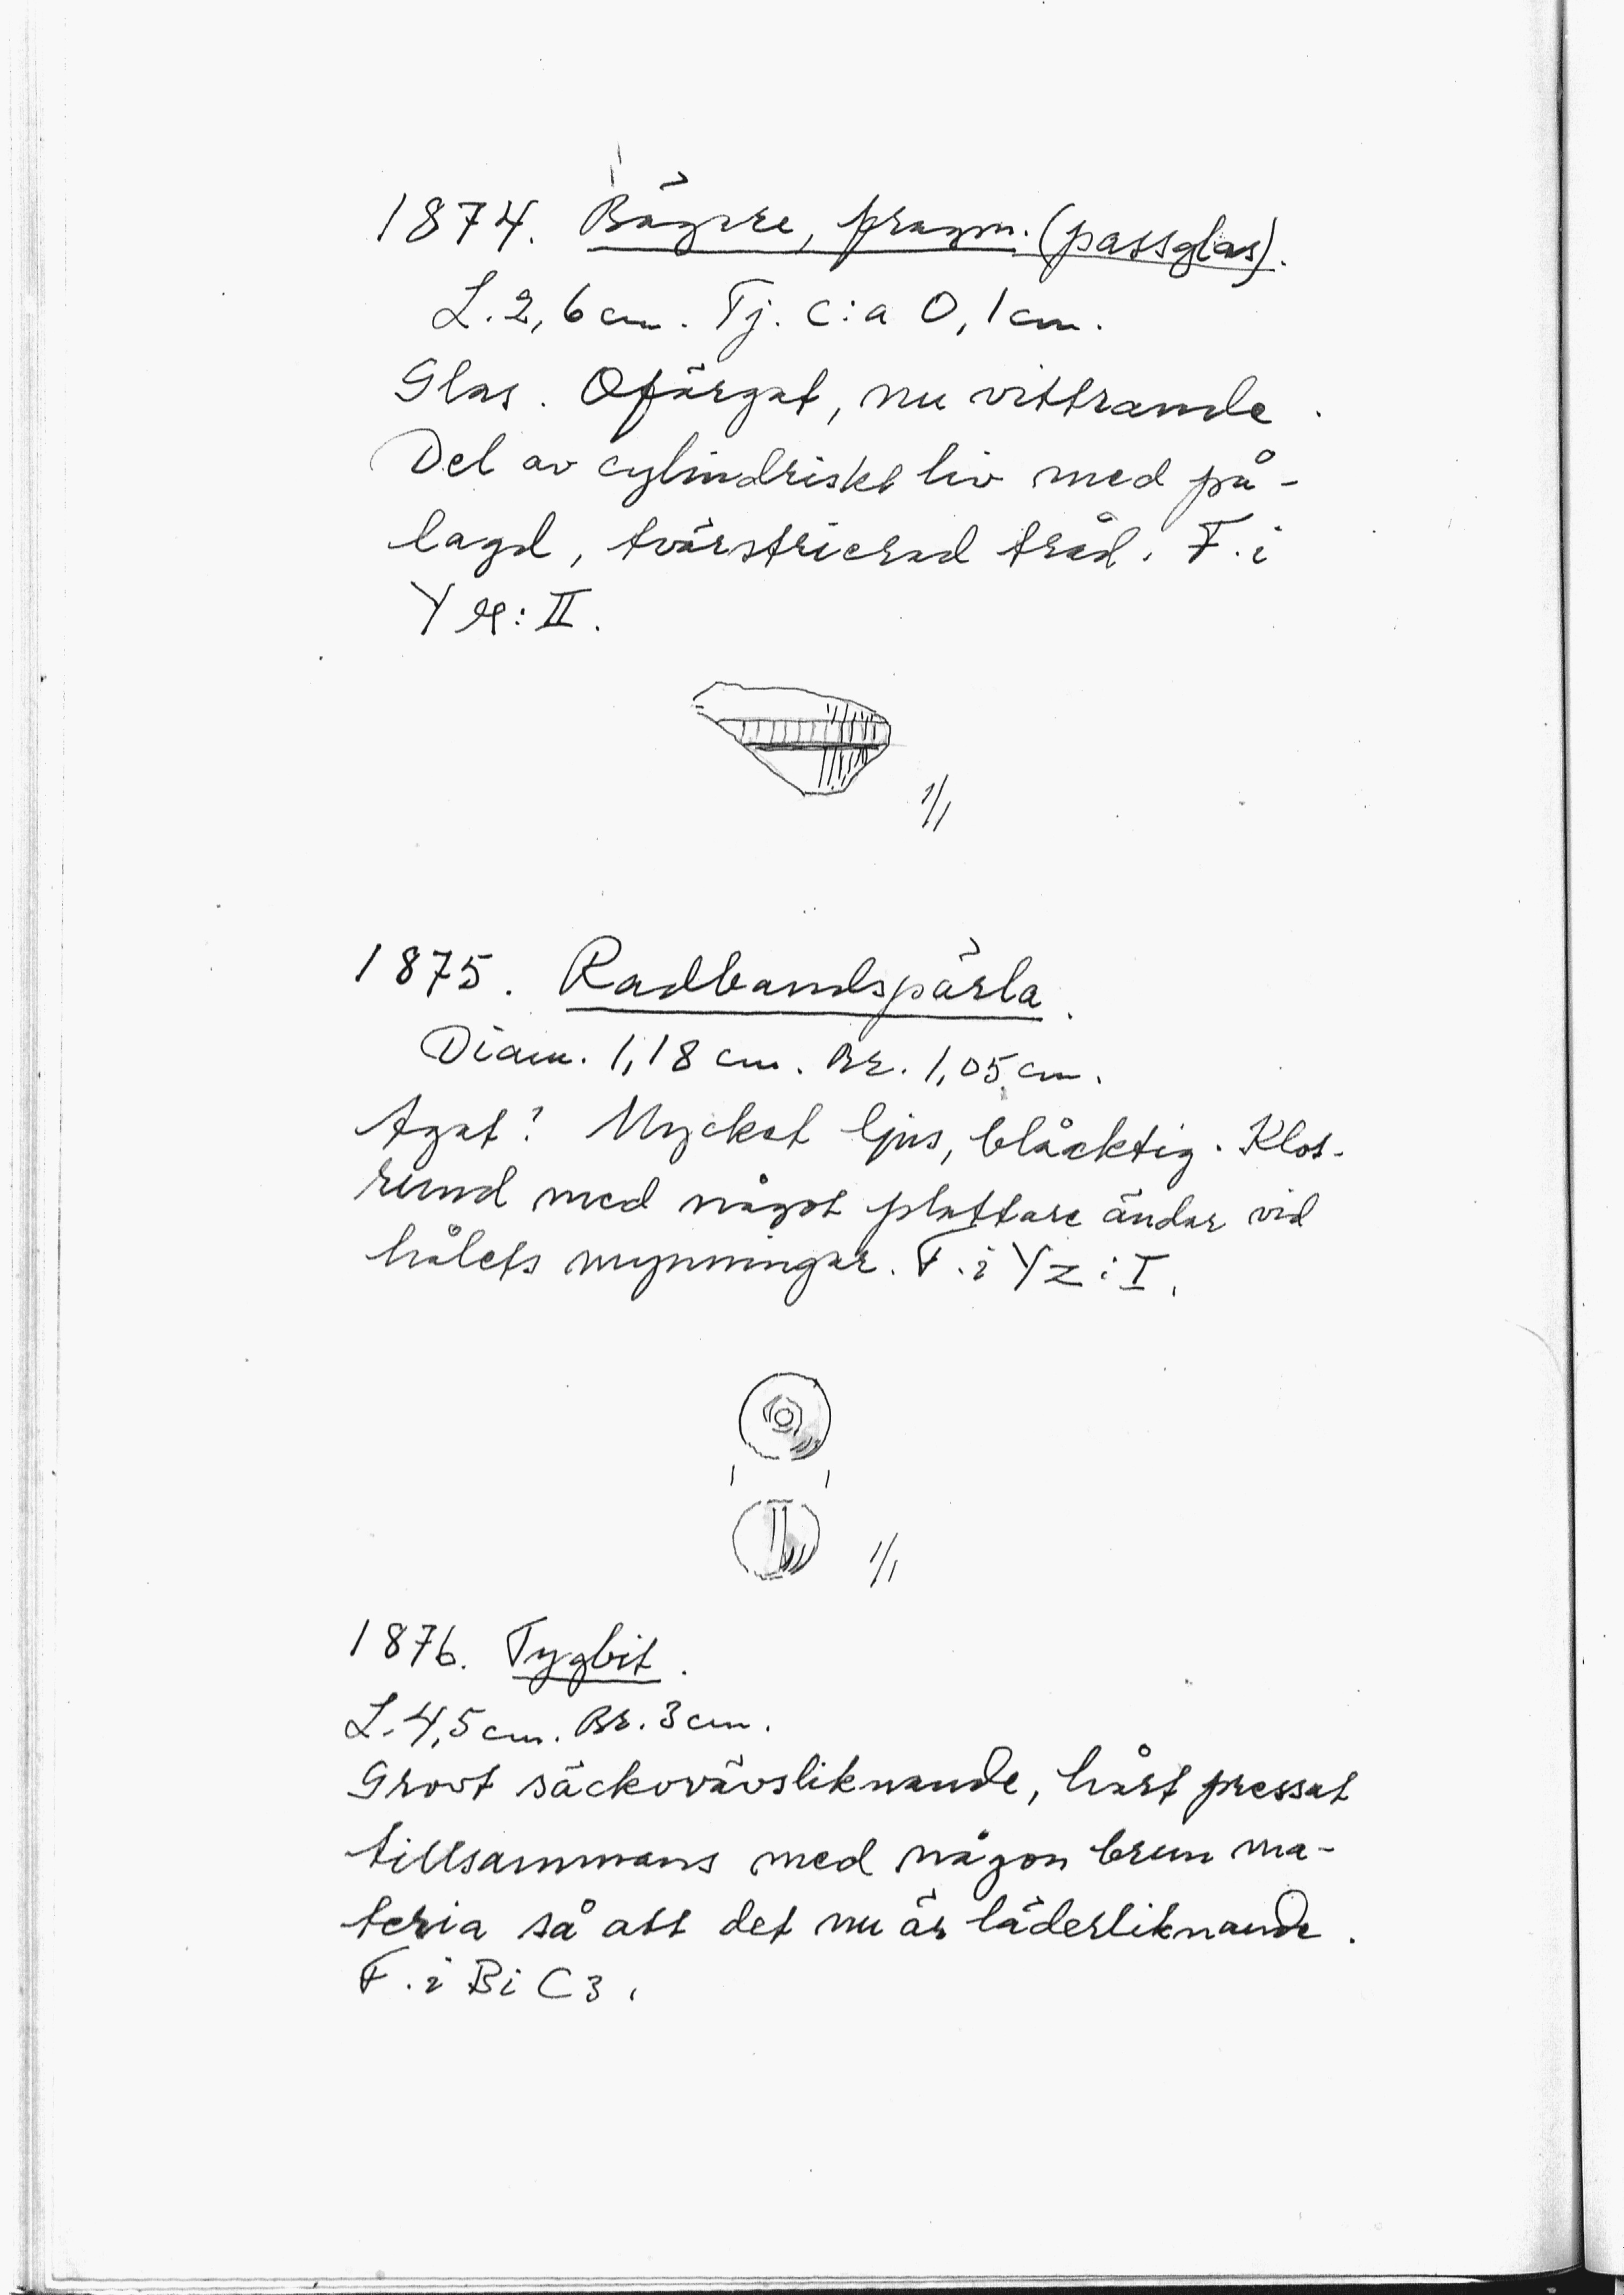 1874. Bägare, fragm. (passglas).
L. 2,6 cm. Tj. c:a 0,1 cm.
Glas. Ofärgat, nu vittrande.
Del av cylindriskt liv med på-
lagd, tvärstrierad tråd. F. i
Y : II.
1/1
1875. Radbandspärla.
Diam. 1,18 cm. Br. 1,05 cm.
Agat? Mycket ljus, blåaktig. Klot-
rund med något plattare ändar vid
hålets mynningar. F. i Y z : I.
1/1
1876. Tygbit.
L. 4,5 cm. Br. 3 cm.
Grovt säckvävsliknande, hårt pressat
tillsammans med någon brun ma-
teria så att det nu är läderliknande.
F. i Bi C3.